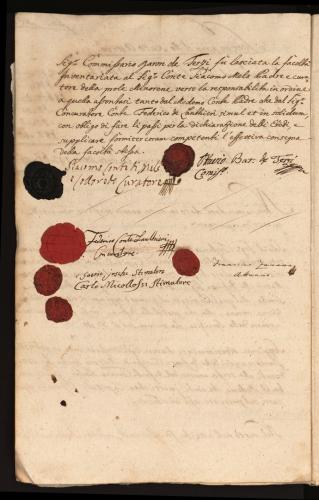 Sigr. Commissario Baron de Terzi fù lasciata la facoltà
inventariata al Sigr. Conte Giacomo Mels Padre e cura-
tore della prole Minorene verso la responsabilità in ordine
a quella assontasi tanto dal Medemo Conte Padre che dal Sigr.
Concuratore Conte Federico de Lanthieri simul et in solidum
con obligo di fare li passi per la dichiarazione delli Eredi, e
supplicare fornitercram competenti l'effettiva consegna
della facoltà stessa
Giacomo Conte di Mels
Curatore
Ottavio Bar. de Terzi
Comiss.
Federico Conte Lanthieri
Curatore
Stimatore
Carlo Nicolossi Stimatore
Francesco
Attuario